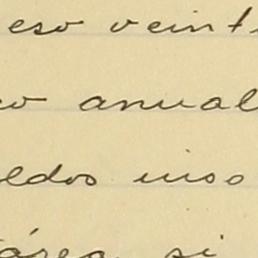 eso veint
o anual
eldos inso
área si